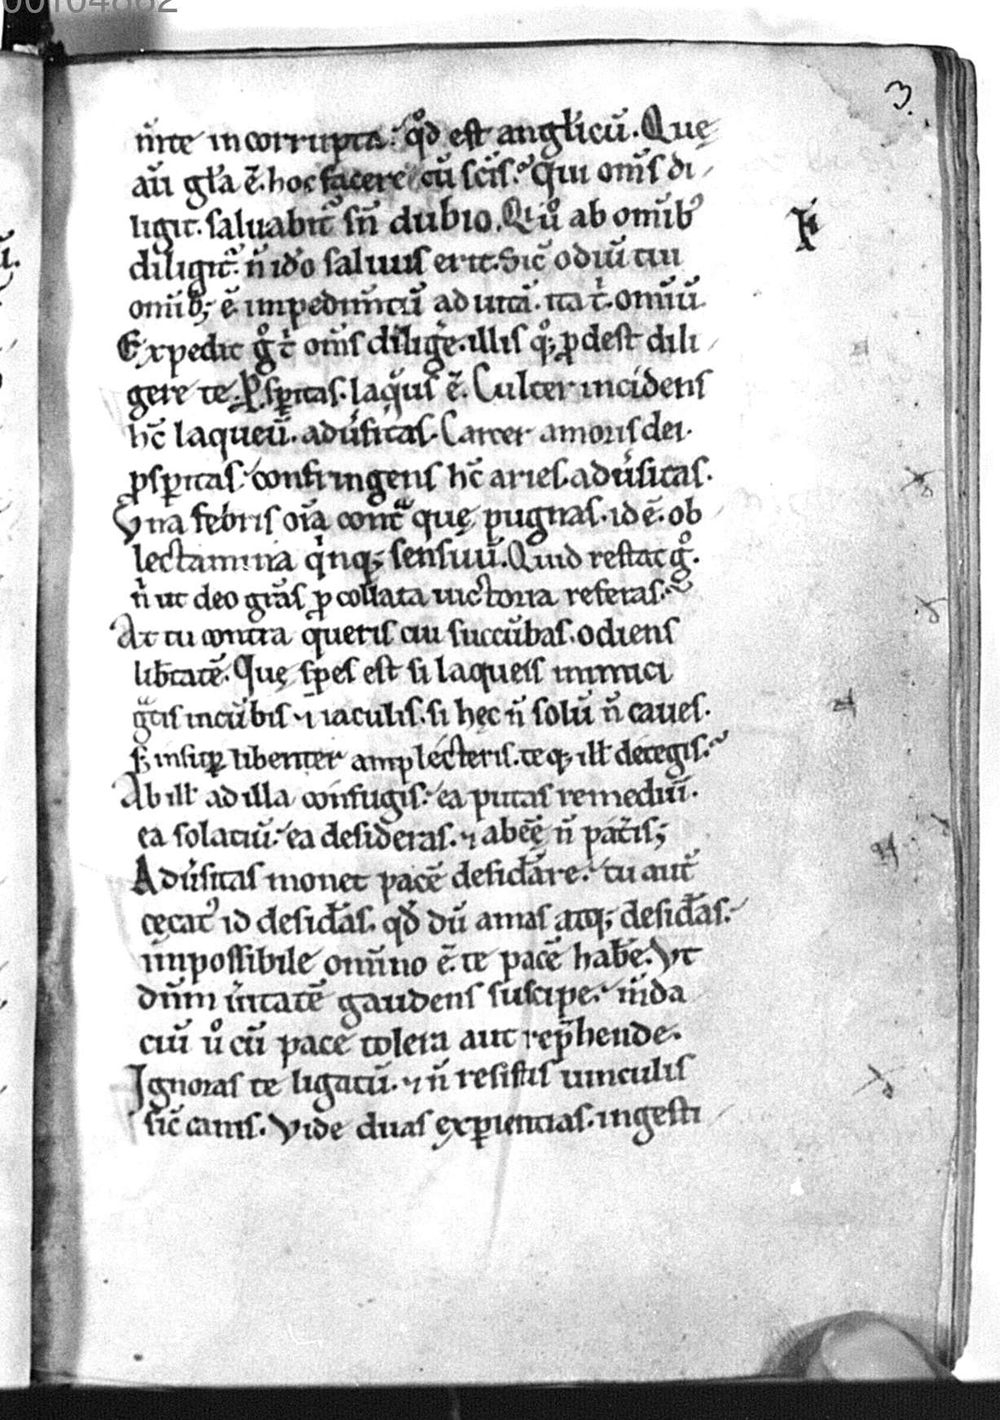 00104862
3
m̄te incorrupta. qd̊ est angłicū. Quę
aū gła ē. hoc facere cū scīs. qui om̄s di
ligit. saluabit᷑ sn̄ dubio. Qi uͦ ab omīb᷒
diligit᷑. n̄ idᵒo saluus erit. Sic̄ odiū cui
omib; ē impedim̄tū ad uitā. ita ⁊ omiū
Expedit gͦ t̄ om̄s diligᵉe. illis qͦ; ꝓdest dili
gere te. Ꝓsꝑitas. laqͣus ē. Culter incidens
hc̄ laqueū. adūsitas. Carcer amoris dei.
ꝓsꝑitas. confringens hc̄ aries. adūsitas.
Vna febris oīa cont̄ͣ quę pugnas. id ē. ob
lectamina qⁱnq; sensuū. Quid restat gͦ.
nⁱ ut deo grās ꝓ collata uictoria referas.
At tu contra queris cui succūbas. odiens
lib̄tatē. Quę spes est si laqueis inimici
gͣtis incūbis ⁊ iaculis. si hęc n̄ solū n̄ caues.
s; insuꝑ libenter amplecteris. te q; ill̄ detegis.
Ab ill̄ ad illa confugis. ea putas remediū.
ea solatiū. ea desideras. ⁊ abeē n̄ pat̄is;
Adūsitas monet pacē desid̄are. tu aut̄
cęcat᷒ id desid̄as. qd̄ dū amas atq; desid̄as.
impossibile omīno ē te pacē hab̄e. Vt
dn̄m ūitatē gaudens suscipe. m̄da
ciū uͦ cū pace tolera aut rep̄hende.
Ignoras te ligatū. ⁊ n̄ resistis uinculis
sic̄ canis. Vide duas exꝑientias. ingesti